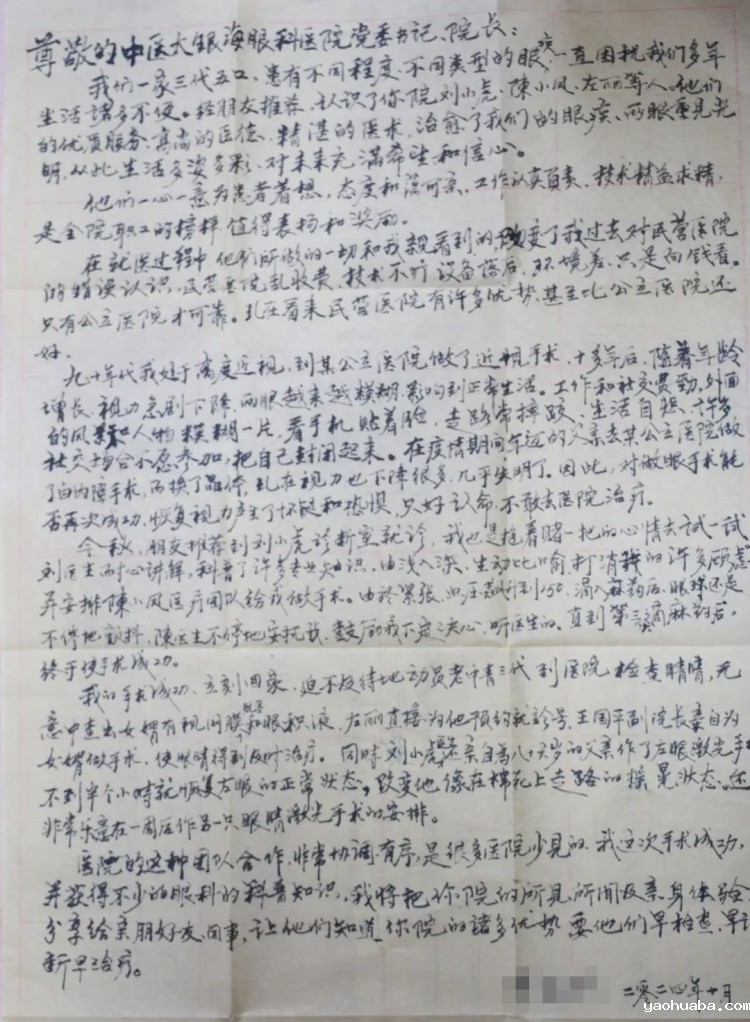 尊敬的中医大银海眼科医院党委书记、院长：
我们一家三代五口，患有不同程度、不同类型的眼疾，一直困扰我们多年
生活诸多不便。经朋友推荐，认识了你院刘小虎、陳小凤、左丽等人。他们
的优质服务、高尚的医德、精湛的医术，治愈了我们的眼疾，两眼重见光
明，从此生活多姿多彩，对未来充满希望和信心。
他们一心一意为患者着想，态度和蔼可亲，工作认真负责，技术精益求精，
是全院职工的榜样，值得表扬和奖励。
在就医过程中，他们所做的一切和我親看到的改变了我过去对民营医院
的错误认识，民营医院乱收费，技术不行，设备落后，环境差，只是向钱看。
只有公立医院才可靠。现在看来民营医院有许多优势，甚至比公立医院还
好。
九十年代我处于高度近视，到某公立医院做了近视手术，十多年后，随着年龄
增长，视力急剧下降，两眼越来越模糊，影响到正常生活。工作和社交 外面
的风景和人物模糊一片，看手机贴着脸，走路常摔跤，生活自 许多
社交场合不愿参加，把自己封闭起来。在疫情期间年迈的父亲去某公立医院做
了白内障手术，而换了晶体，现在视力也下降很多，几乎失明了。因此，对做眼手术能
否再次成功，恢复视力产生了怀疑和恐惧，只好认命，不敢去医院治疗。
今秋，朋友推荐到刘小虎诊断室就诊，我也是抱着赌一把的心情去试一试
刘医生耐心讲解，科普了许多专业知识，由浅入深，生动比喻打消我的许多顾虑
并安排陳小凤医疗团队给我做手术。由於紧张，血压飙升到150，滴入麻药后，眼球还是
不停地颤抖，陳医生不停地安抚我，鼓励我下定决心，听医生的。直到第三滴麻药后，
终于使手术成功。
我的手术成功，立刻回家，迫不及待地动员老中青三代到医院检查眼睛，无
意中查出女婿有视网膜 和眼积液，左丽直接为他预约就診号，王国平副院长亲自为
女婿做手术，使眼睛得到及时治疗。同时刘小虎 亲自为八十 岁的父亲作了左眼激光手术
不到半个小时就恢复左眼的正常状态，改变他像在棉花上走路的摇晃状态，还
非常乐意在一周后作另一只眼睛激光手术的安排。
医院的这种团队合作，非常协调有序，是很多医院少见的，我这次手术成功，
并获得不少的眼科的科普知识，我将把你院的所见所闻及亲身体验
分享给亲朋好友、同事，让他们知道你院的諸多优势，要他们早检查，早诊
断早治疗。
二零二四年十月
yaohuaba.com